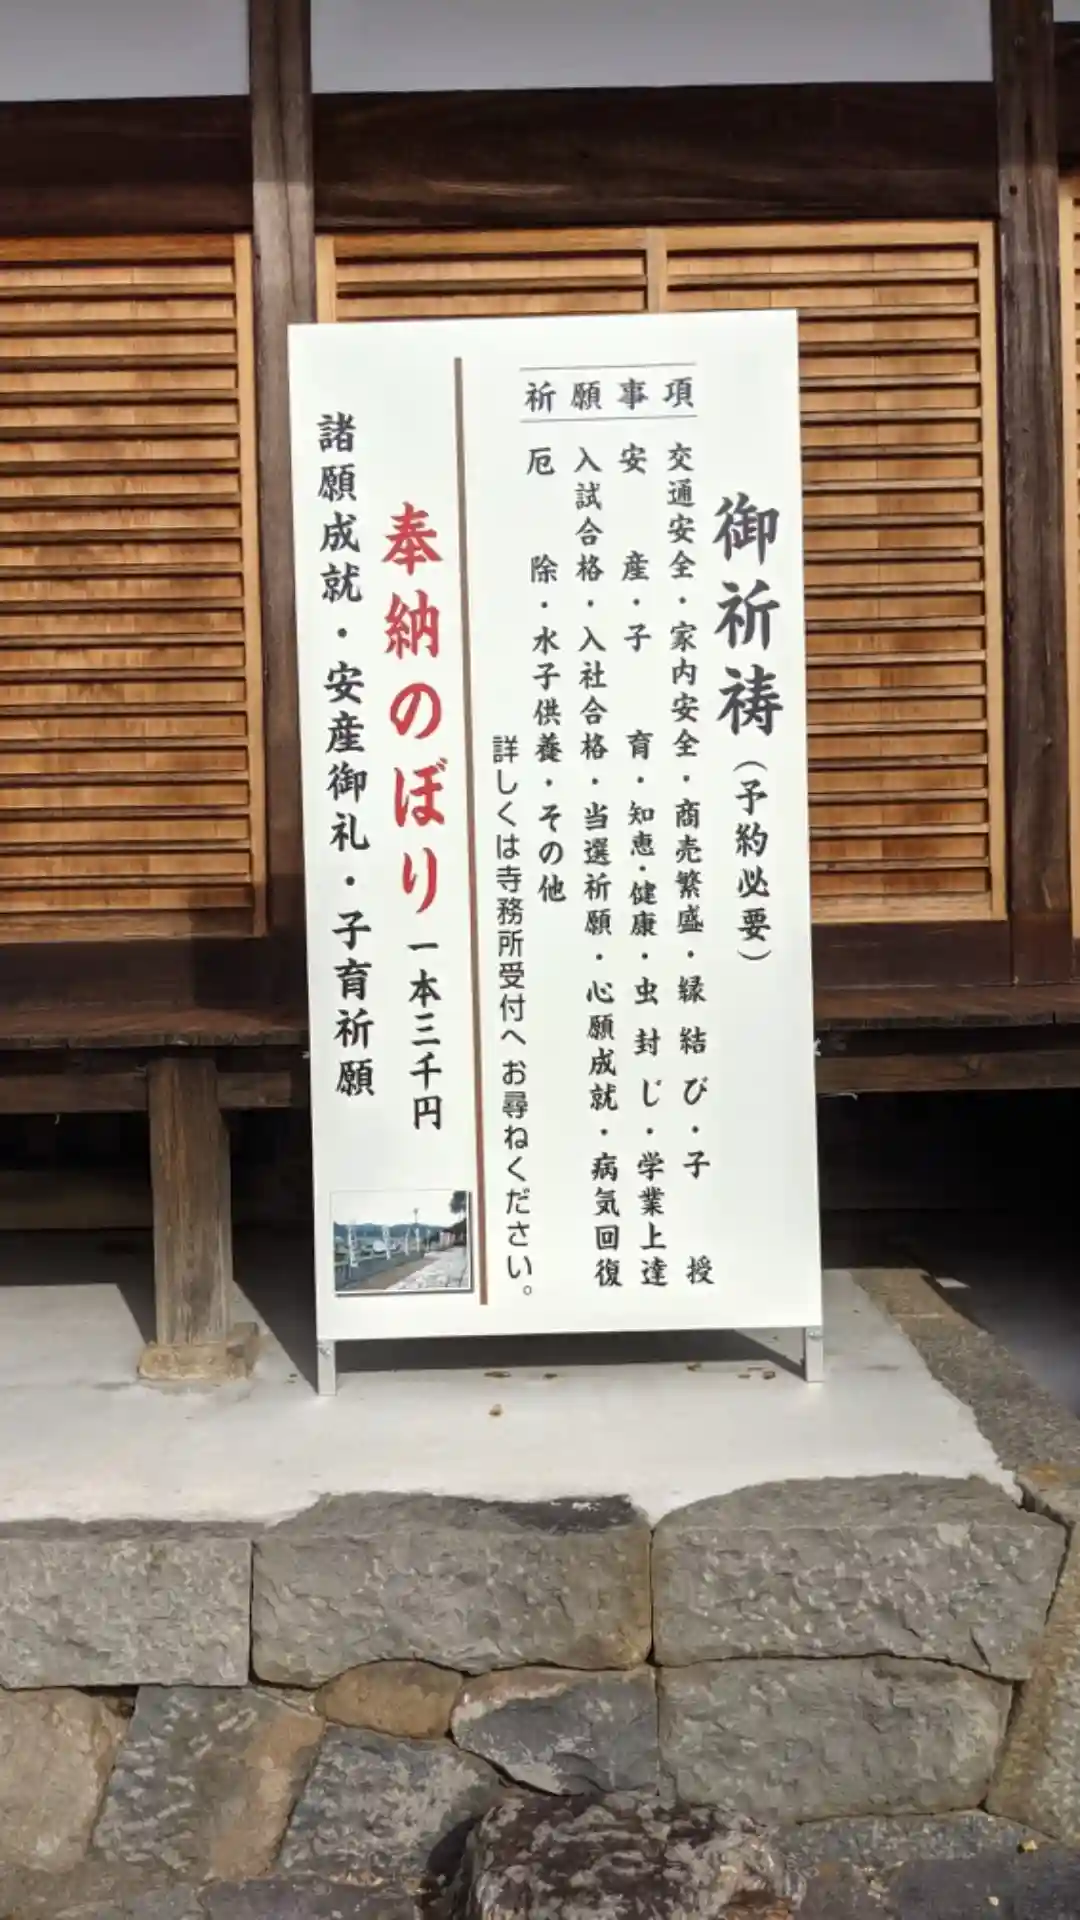 御祈祷（予約必要）
祈願事項
交通安全・家内安全・商売繁盛・縁結び・子授
安産・子育・知恵・健康・虫封じ・学業上達
入試合格・入社合格・当選祈願・心願成就・病気回復
厄除・水子供養・その他
詳しくは寺務所受付へお尋ねください。
奉納のぼり 一本三千円
諸願成就・安産御礼・子育祈願